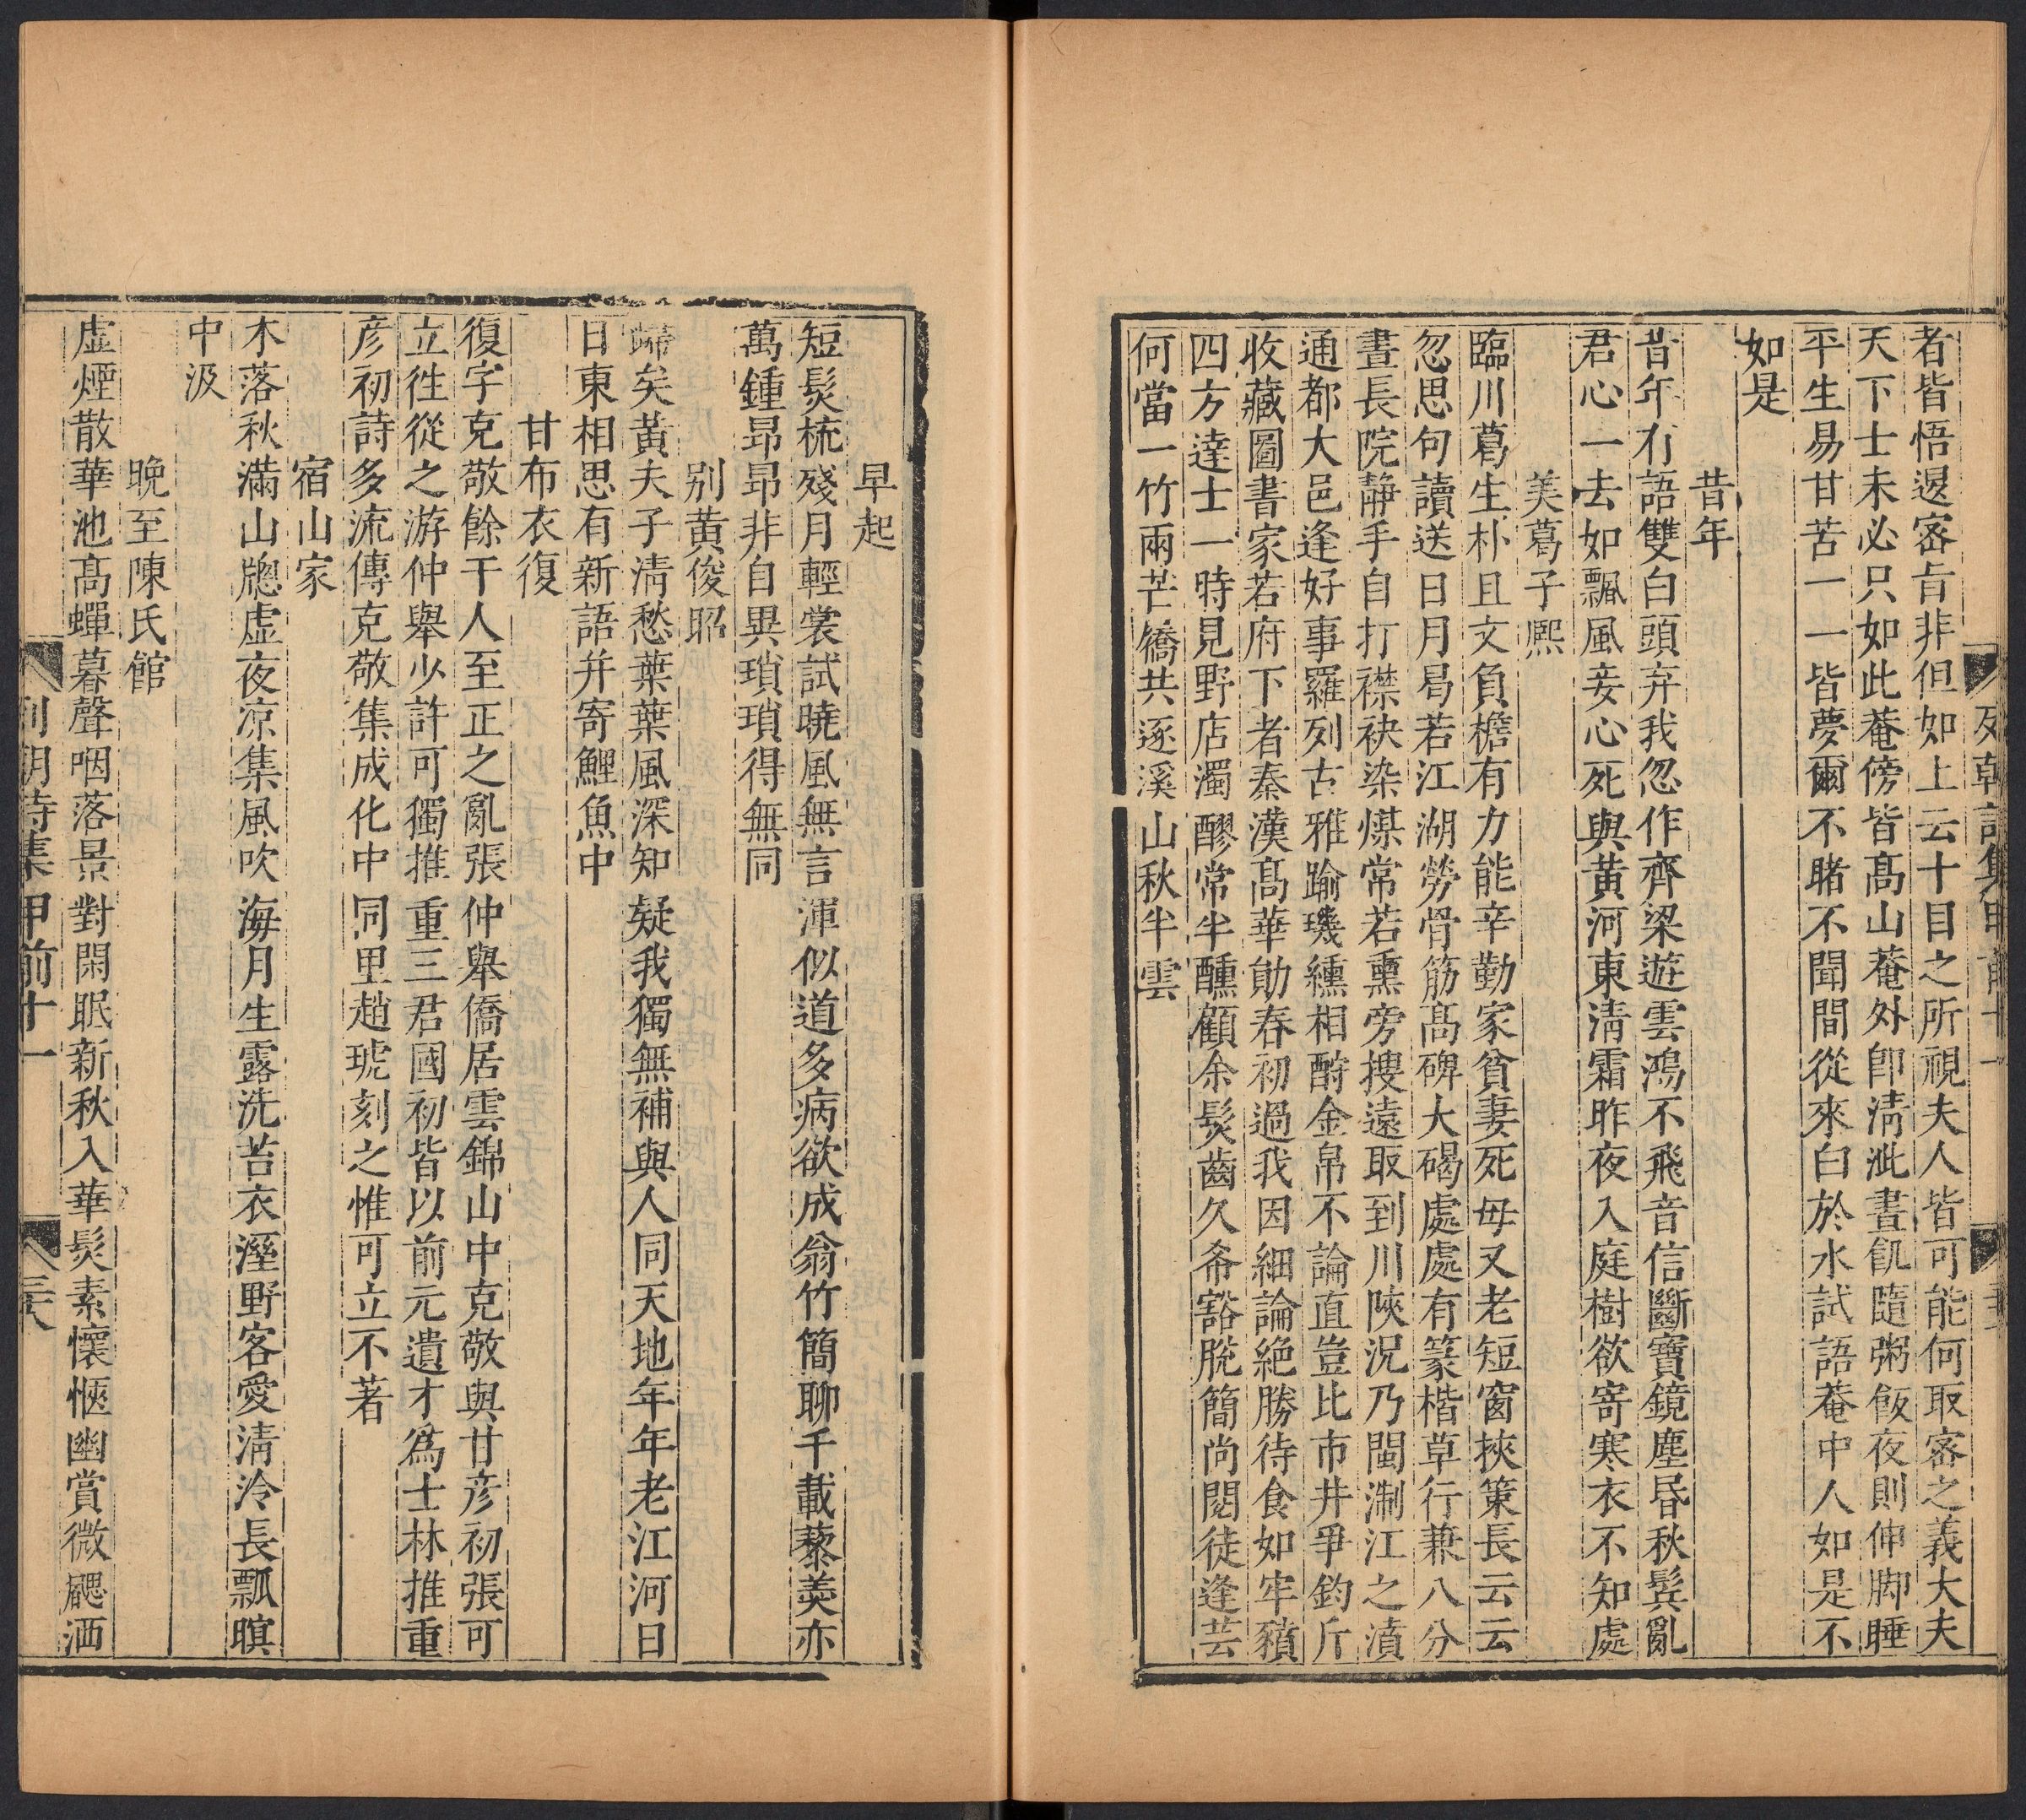 列朝詩集甲前十一
者皆悟退密㫖非但如上云十目之所視夫人皆可能何取密之義大夫
天下士未必只如此菴傍皆髙山菴外卽淸泚晝飢隨粥飯夜則伸脚睡
平生易甘苦一一皆夢爾不睹不聞間從來白於水試語菴中人如是不
如是
昔年
昔年有語雙白頭弃我忽作齊梁遊雲鴻不飛音信斷寶鏡塵昬秋鬂亂
君心一去如飄風妾心死與黃河東淸霜昨夜入庭樹欲寄寒衣不知處
美葛子熈
臨川葛生朴且文負檐有力能辛勤家貧妻死毋又老短窗挾筞長云云
忽思句讀送日月曷若江湖勞骨筋髙碑大碣處處有篆楷草行兼八分
晝長院静手自打襟袂染煤常若熏旁搜遠取到川陜況乃閩淛江之濆
通都大邑逢好事羅列古雅踰璣纁相酧金帛不論直豈比市井爭鈞斤
收藏圖書家若府下者秦漢髙華勛春初過我因細論絶勝待食如牢豶
四方達士一時見野店濁醪常半醺顧余髮齒久希豁脫簡尚閱徒逢芸
何當一竹兩芒僑共逐溪山秋半雲
早起
短髮梳殘月輕裳試曉風無言渾似道多病欲成翁竹簡聊千載藜羮亦
萬鍾昻昻非自異瑣瑣得無同
别黄俊昭
歸矣黃夫子淸愁葉葉風深知疑我獨無補與人同天地年年老江河日
日東相思有新語并寄鯉魚中
甘布衣復
復字克敬餘干人至正之亂張仲舉僑居雲錦山中克敬與甘彦初張可
立徃從之游仲舉少許可獨推重三君國初皆以前元遺才爲士林推重
彦初詩多流傳克敬集成化中同里趙琥刻之惟可立不著
宿山家
木落秋滿山牕虛夜凉集風吹海月生露洗苔衣溼野客愛淸泠長瓢暝
中汲
晩至陳氏館
虛煙散華池髙蟬暮聲咽落景對閑眠新秋入華髮素懷愜幽賞微颸洒
列朝詩集甲前十一
三六